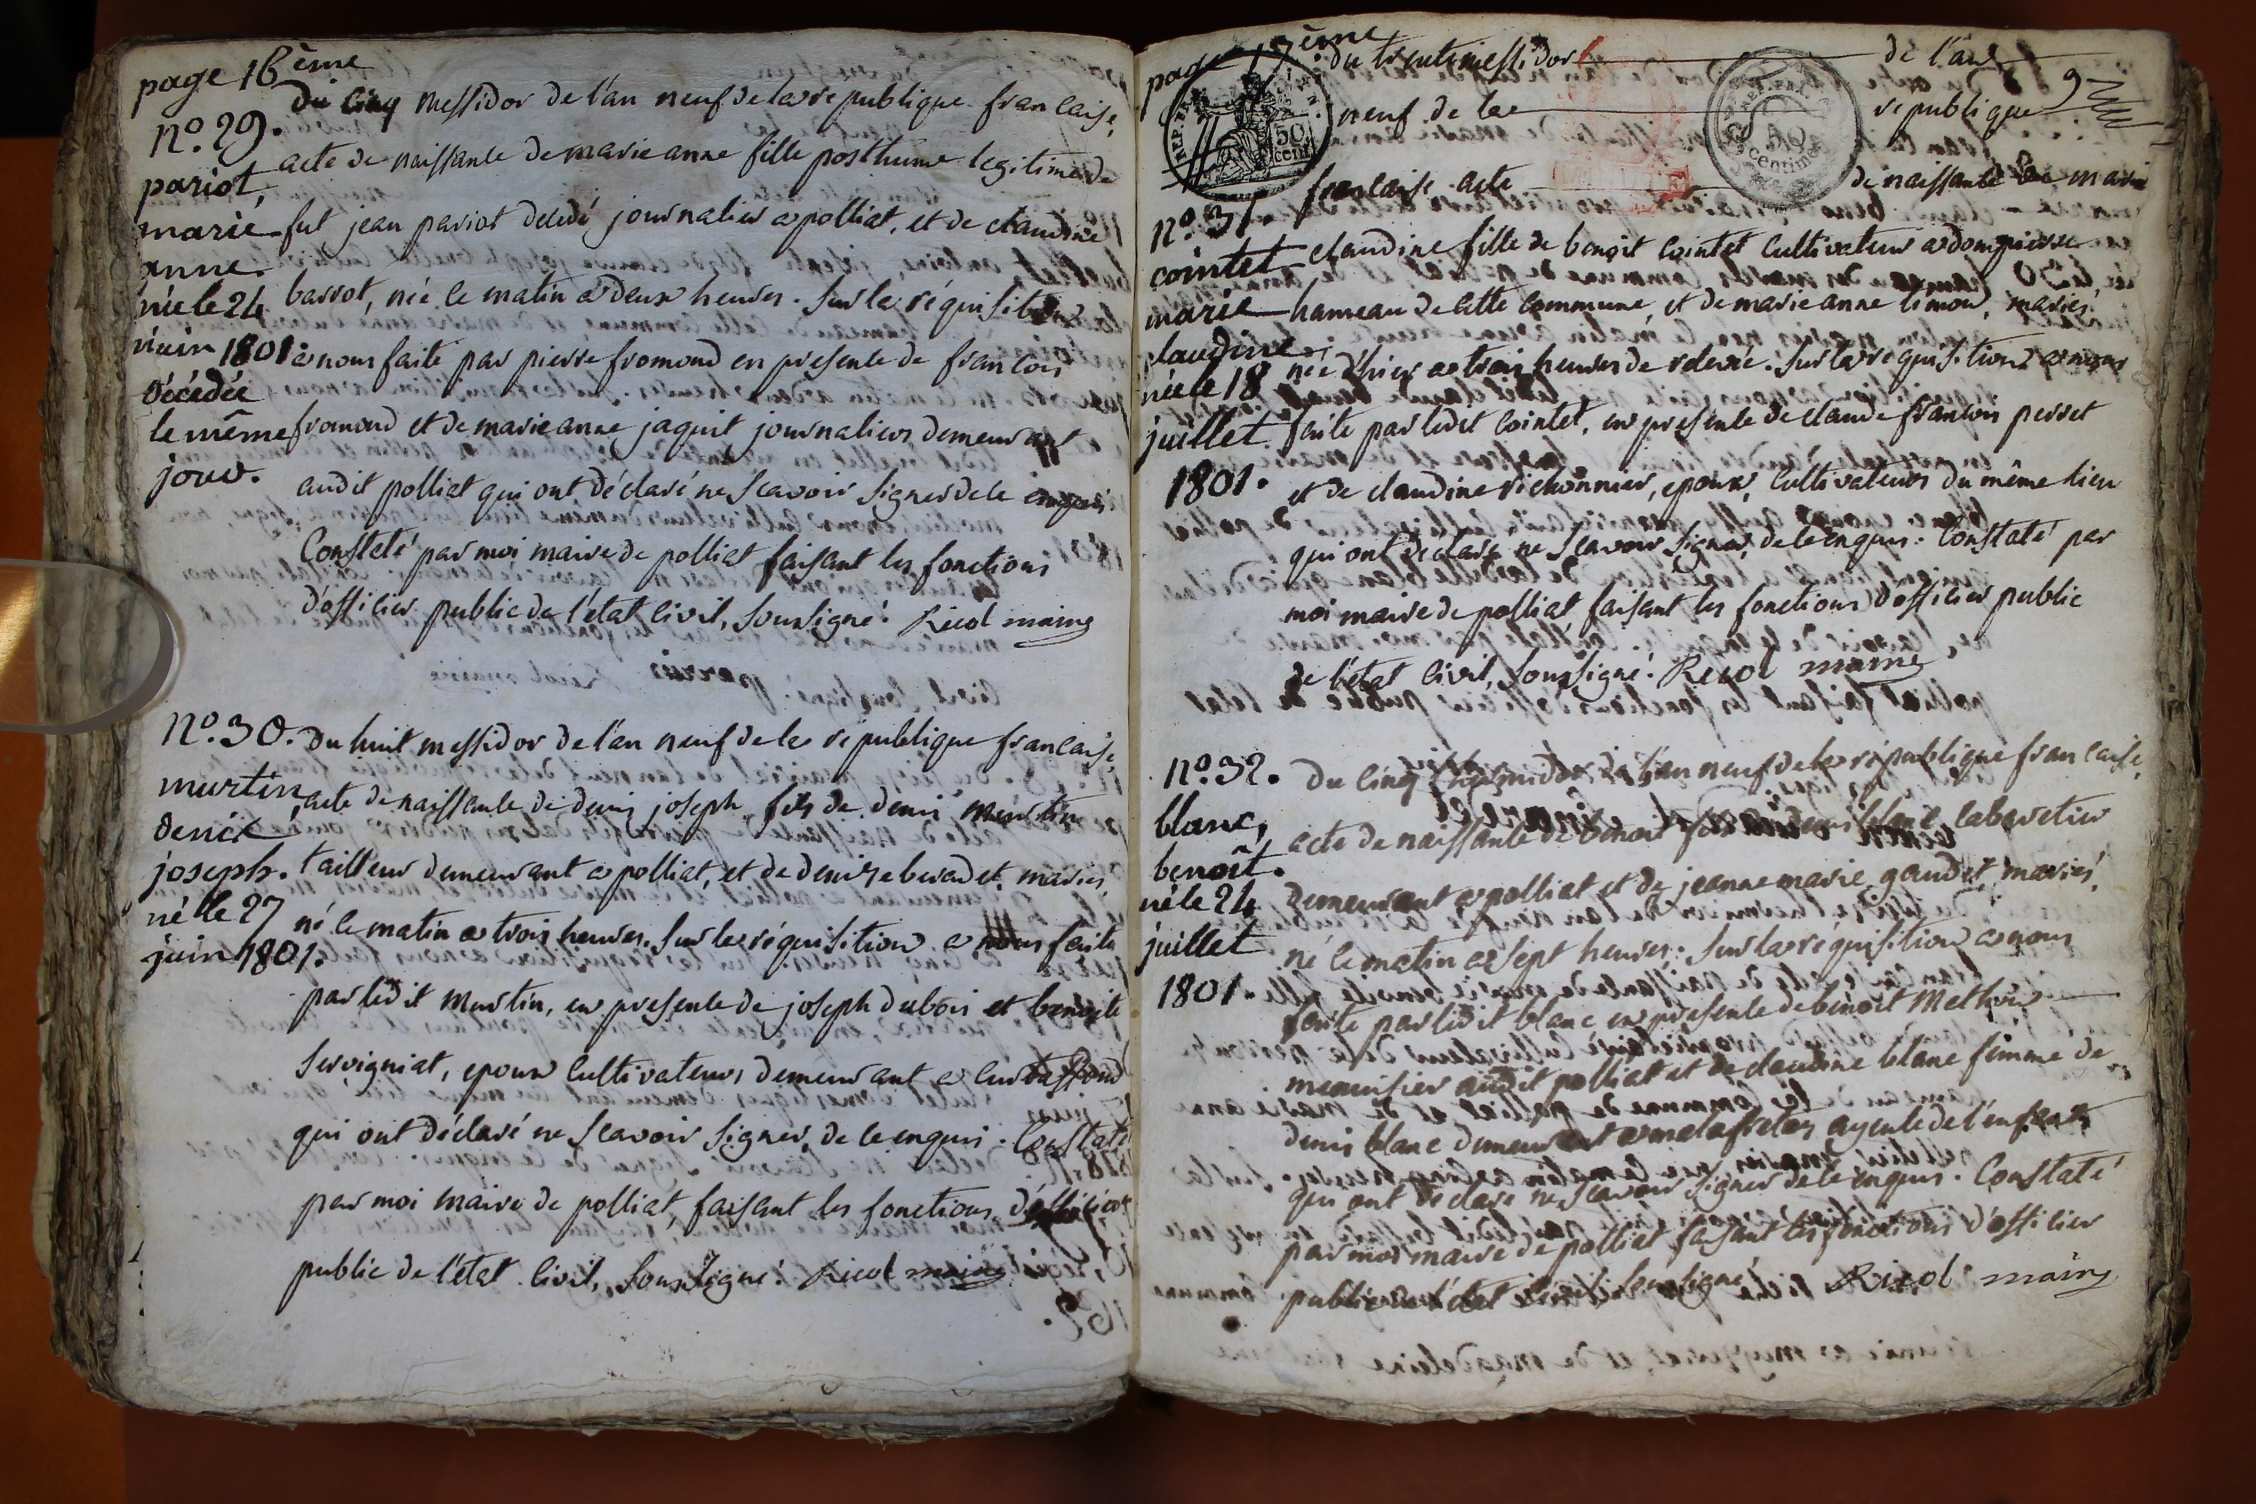 page 16ème
Du cinq messidor de l'an neuf de la republique francaise,
n.º 29.
acte de naissance de marie anne fille posthume legitime de
pariot,
marie
fut jean pariot décédé journalier a polliat, et de claudine
anne.
née le 24
barrot, née le matin a deux heures. sur la réquisition
juin 1801.
a nous faite par pierre fromond en presence de francois
décédée
le même
fromond et de marie anne jaquit journaliers demeurant
jour.
audit polliat qui ont déclaré ne scavoir signer de ce enquis
Constaté par moi maire de polliat faisant les fonctions
d'officier public de l'état civil, soussigné. Ricol maire
n.º 30.
Du huit messidor de l'an neuf de la republique francaise,
murtin,
acte de naissance de denis joseph, fils de denis murtin
denis
joseph.
tailleur demeurant a polliat, et de denise beraudet, mariés,
né le 27
né le matin a trois heures. sur la réquisition a nous faite
juin 1801.
par ledit murtin, en presence de joseph dubois et benoite
servigniat, epoux cultivateurs demeurant a curtaffond
qui ont déclaré ne scavoir signer, de ce enquis. Constaté
par moi maire de polliat, faisant les fonctions d'officier
public de l'état civil, soussigné. Ricol maire
page 17ème
du trente messidor de l'an
9
neuf de la republique
REP. FRA.
50 cent.
REP. FRA.
centimes
francaise acte de naissance de marie
n.º 31.
cointet
claudine fille de benoit cointet cultivateur a dompierre
marie
hameau de cette commune, et de marie anne limon, mariés.
claudine.
née d'hier a trois heures de relevée. sur la réquisition a nous
née le 18
juillet
faite par ledit cointet, en presence de claude francois perret
1801.
et de claudine richonnier, epoux, cultivateurs du même lieu
qui ont declaré ne scavoir signer, de ce enquis. Constaté par
moi maire de polliat, faisant les fonctions d'officier public
de l'état civil, soussigné. Ricol maire
n.º 32.
Du cinq thermidor de l'an neuf de la république francaise,
blanc,
acte de naissance de benoit fils de denis blanc cabaretier
benoît.
demeurant a polliat et de jeanne marie gaudet, mariés.
né le 24
juillet
né le matin a sept heures. sur la réquisition a nous
1801.
faite par ledit blanc en presence de benoit
menuisier audit polliat et de claudine blanc femme de
denis blanc demeurant a malafretas ayeule de l'enfant
qui ont declaré ne scavoir signer de ce enquis. Constaté
par moi maire de polliat faisant les fonctions d'officier
public de l'état civil soussigné Ricol maire